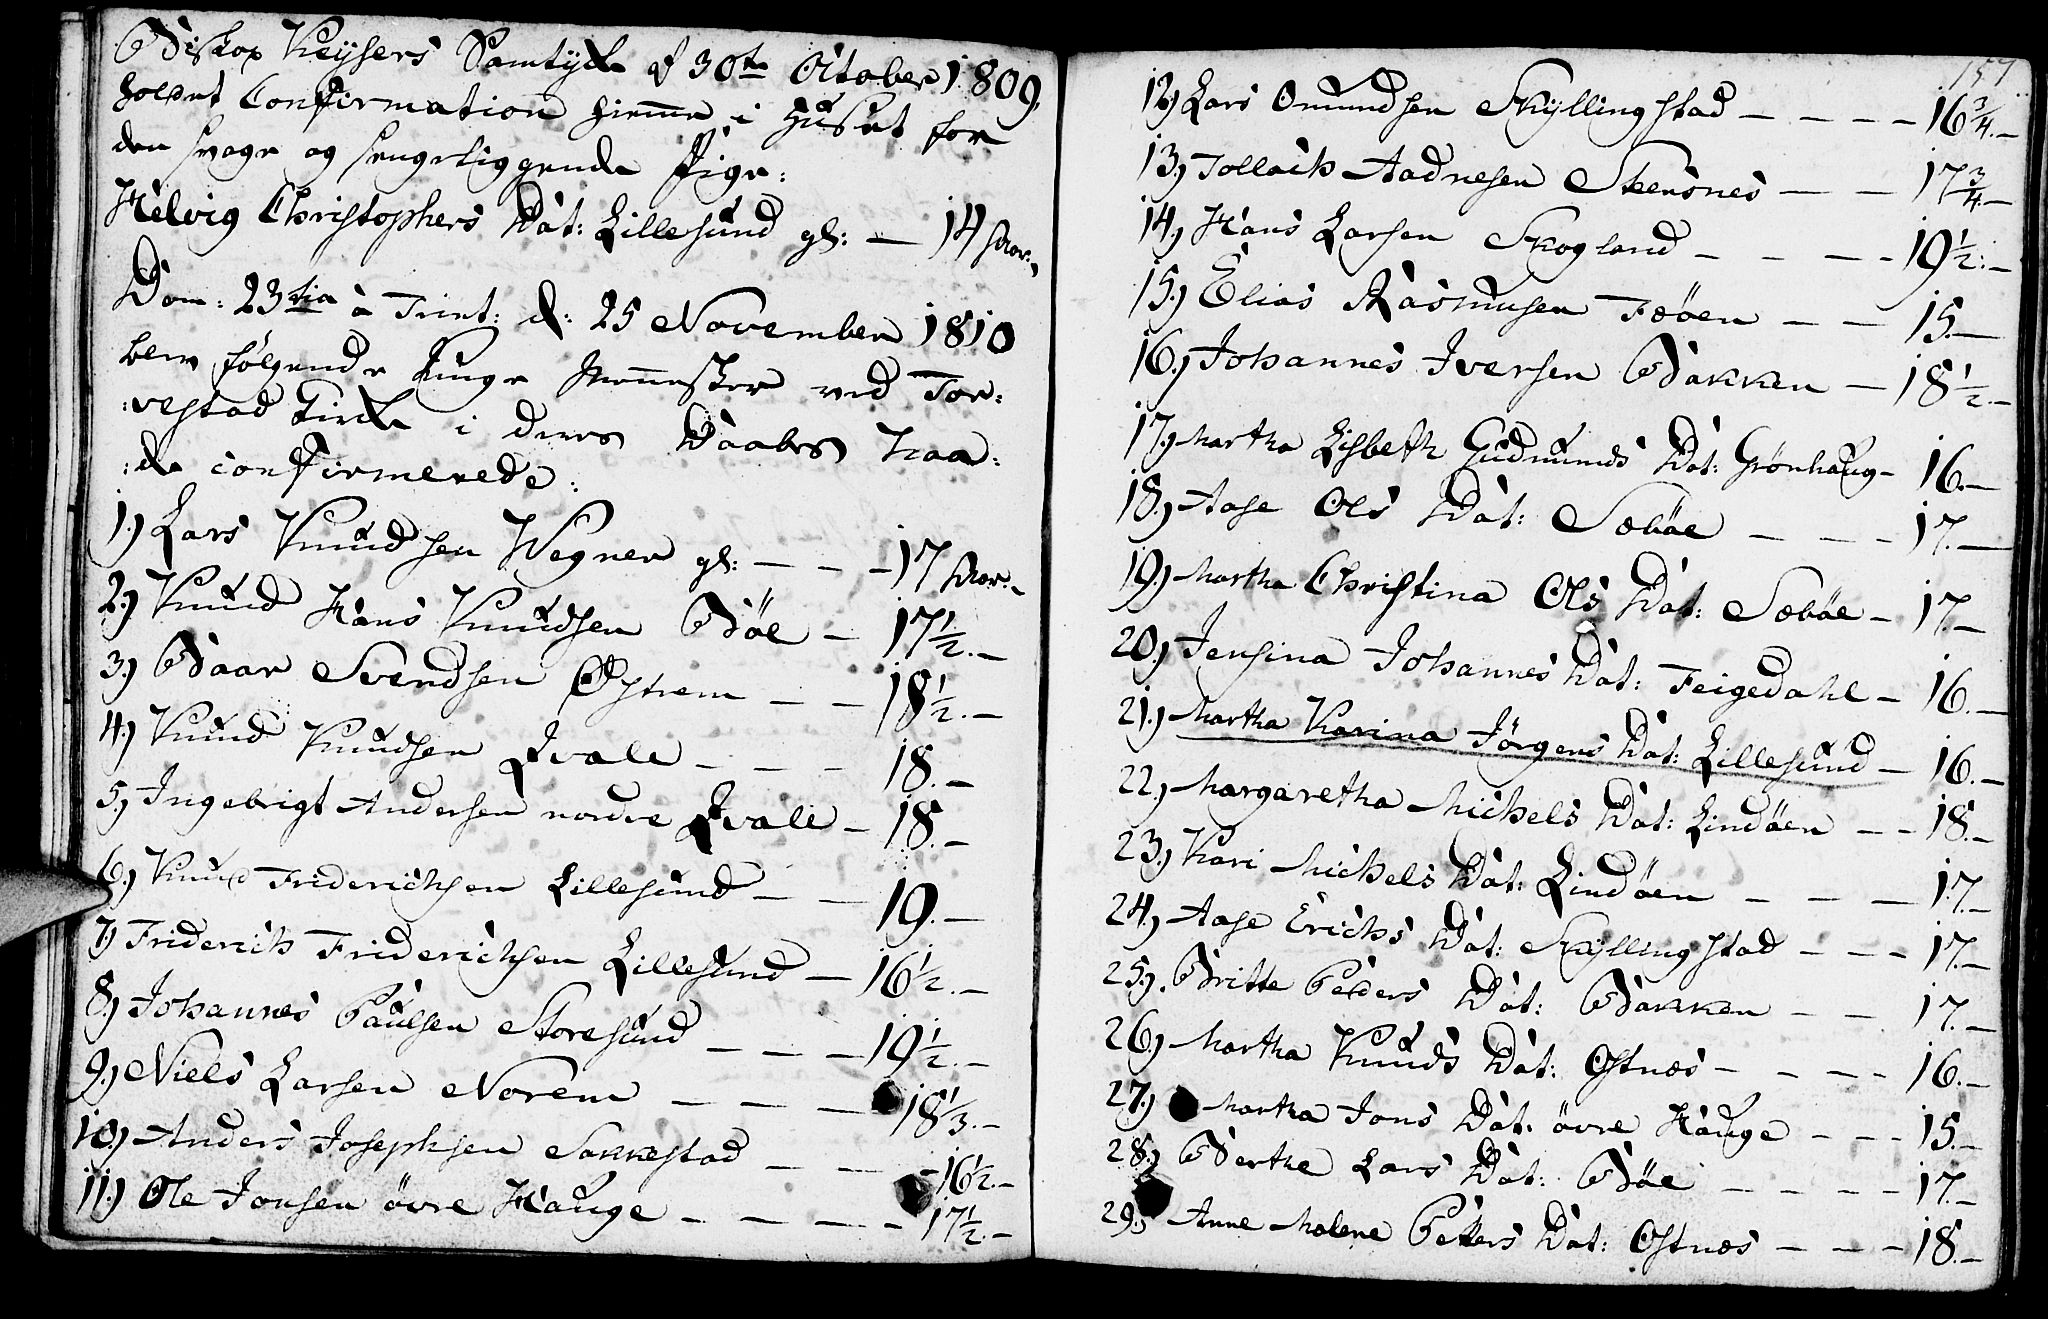 Biskop Keysers Samtÿcke d 30te October 1809
holdet Confirmation hiemme i Huset for
den svage og sengeliggende Pige:
Helvig Christophers Dat: Lillesund gl: — 14 Aar.
Dom: 23tia à Trint: d: 25 November 1810
blev følgende Unge Mennesker ved Tor:
:vestad Kircke i deres Daabes Naa:
:de confirmerede:
1.) Lars Knudsen Wegner gl: - - - 17 Aar.
2.) Knud Hans Knudsen Böe - 17½.-
3.) Baar Svendsen Østrem - - 18½.-
4.) Knud Knudsen Qvale - - - 18.-
5.) Ingebrigt Andersen nordre Qvale - 18.-
6.) Knud Friderichsen Lillesund - - 19.-
7.) Friderich Friderichsen Lillesund - 16½.-
8.) Johannes Paulsen Storesund - - - 19½.-
9.) Niels Larsen Norem - - - - 18⅓.-
10.) Anders Josephsen Sakkestad - - - 16½.-
11.) Ole Jonsen övre Hauge - - - - - 17½.-
157.
12.) Lars Omundsen Skÿllingstad - - - - 16¾.-
13.) Tollach Aadnesen Steensnes - - 17¾.-
14.) Hans Larsen Skogland - - - - 19½.-
15.) Elias Rasmusen Fæöen - - 15.-
16.) Johannes Iversen Bakken - 18½.-
17.) Martha Lisbeth Gudmunds Dat: Grönhaug - 16.-
18.) Aase Ols Dat: Sæböe - - - - 17.-
19.) Martha Christina Ols Dat: Sæböe - 17.-
20.) Jensina Johannes Dat: Feigedahl - 16.-
21.) Martha Karina Jörgens Dat: Lillesund - 16.-
22.) Margaretha Michels Dat: Lindöen - - 18.-
23.) Kari Michels Dat: Lindöen - - - - 17.-
24.) Aase Erichs Dat: Skÿllingstad - - - 17.-
25.) Britte Peders Dat: Bakken - - 17.-
26.) Martha Knuds Dat: Ostnæs - - - - 16.-
27.) Martha Jons Dat: övre Hauge - - - 15.-
28.) Berthe Lars Dat: Böe - - - - - 17.-
29.) Anne Malene Petters Dat: Ostnæs - - - - 18.-